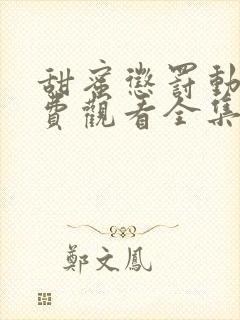 甜蜜懲罰動
費觀看全集
鄭文鳳